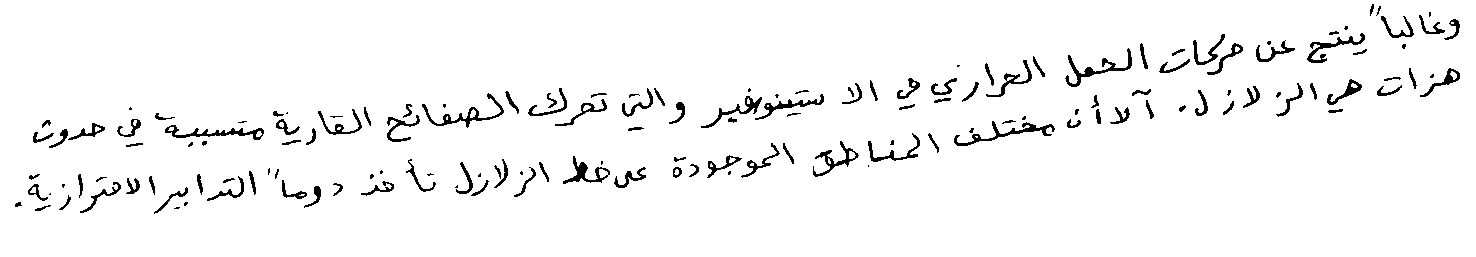 وغالباً ينتج عن حركات الحمل الحراري في الاستينوسفير والتي تحرك الصفائح القارية متسببة في حدوث
هزات هي الزلازل. آلا أن مختلف المناطق الموجودة على خط الزلازل تأخذ دوماً التدابير الاحترازية.